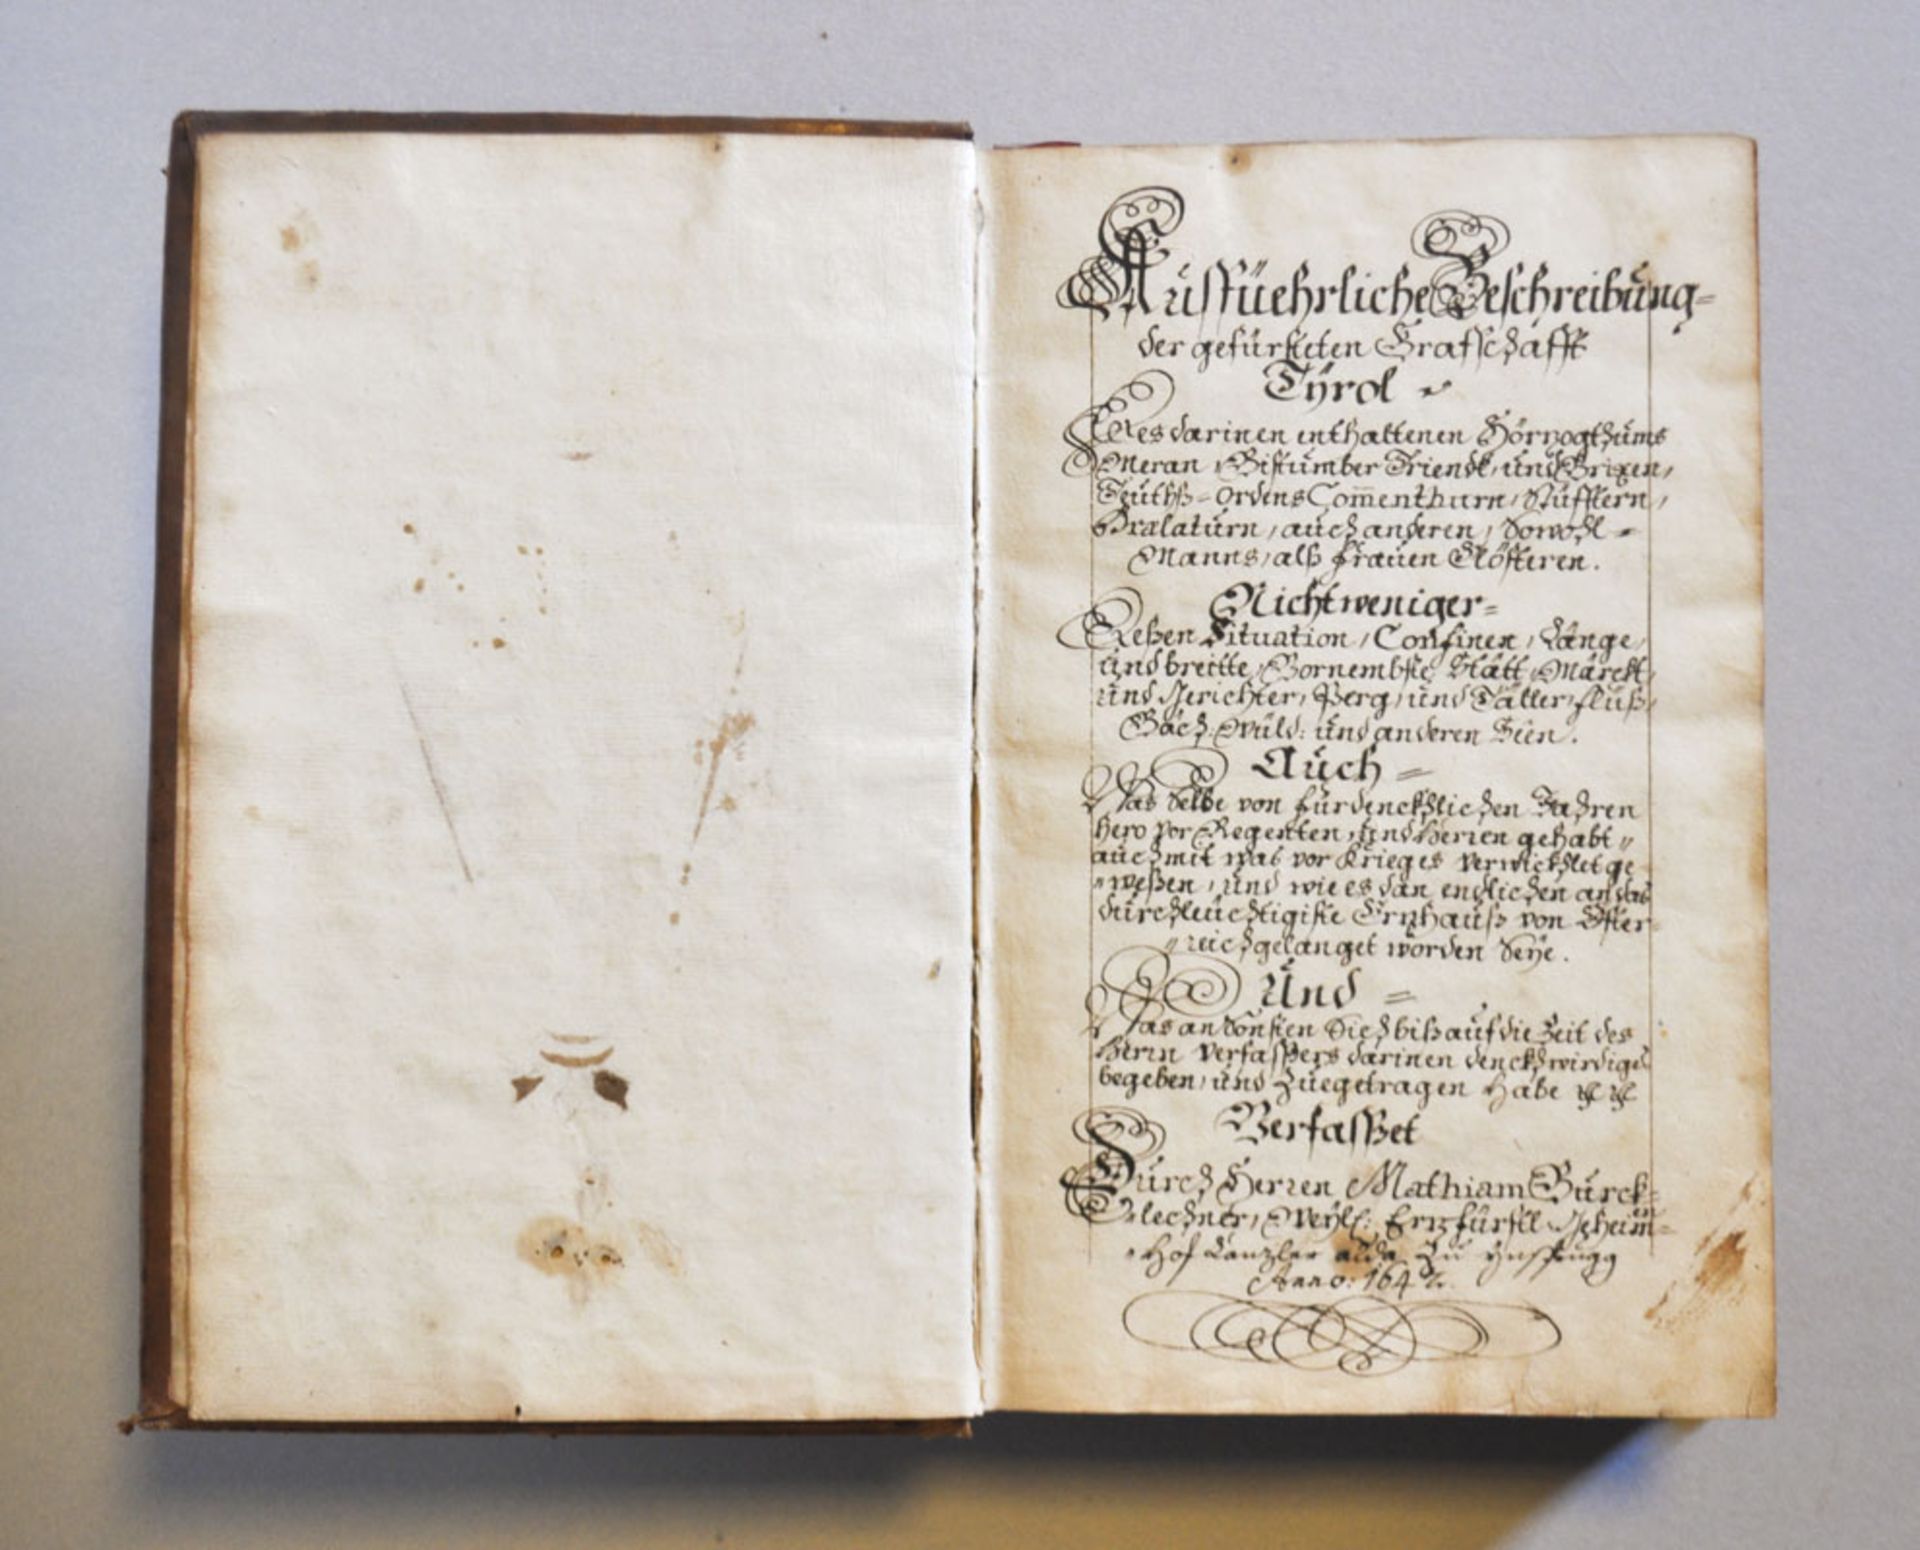 Ausfüehrliche Beschreibung=
der gefürsteten Grafschafft
Tÿrol
Des darinen enthaltenen Hörzogthums
Meran, Bistumber Triendt, und Brixen,
Teüthß=Ordens Com̅enthurn, Stüfftern,
Prælaturn, auch anderen, Sowohl=
Manns, alß Frauen Clöfteren.
Nicht weniger=
Deßen Situation, Confinen, Länge,
und breitte, Vornembste Stätt, Märckt,
und Gerichter, Perg, und Täller, fluß,
Bäch: Wüld: und anderen Seen.
Auch=
Was Selbe von fürdencklichen Jahren
hero vor Regenten, und Herren gehabt,,
auch mit was vor Krieges verwickhlet ge
,,weßen, und wie es dan endlichen an das
durchleüchtigiste Ertzhauß von Öster=
,,reich gelanget worden Seÿe.
Und=
Was ansonsten Sich biß auf die Zeit des
Herrn Verfaßers darinen denckhwirdiges
begeben, und Zuegetragen habe
Verfasset
Durch Herren Mathiam Burck=
Lechner, Weÿl: Ertzfürstl. Geheim=
Hof Canzler alda Zu Ynsprugg
Anno: 1642.